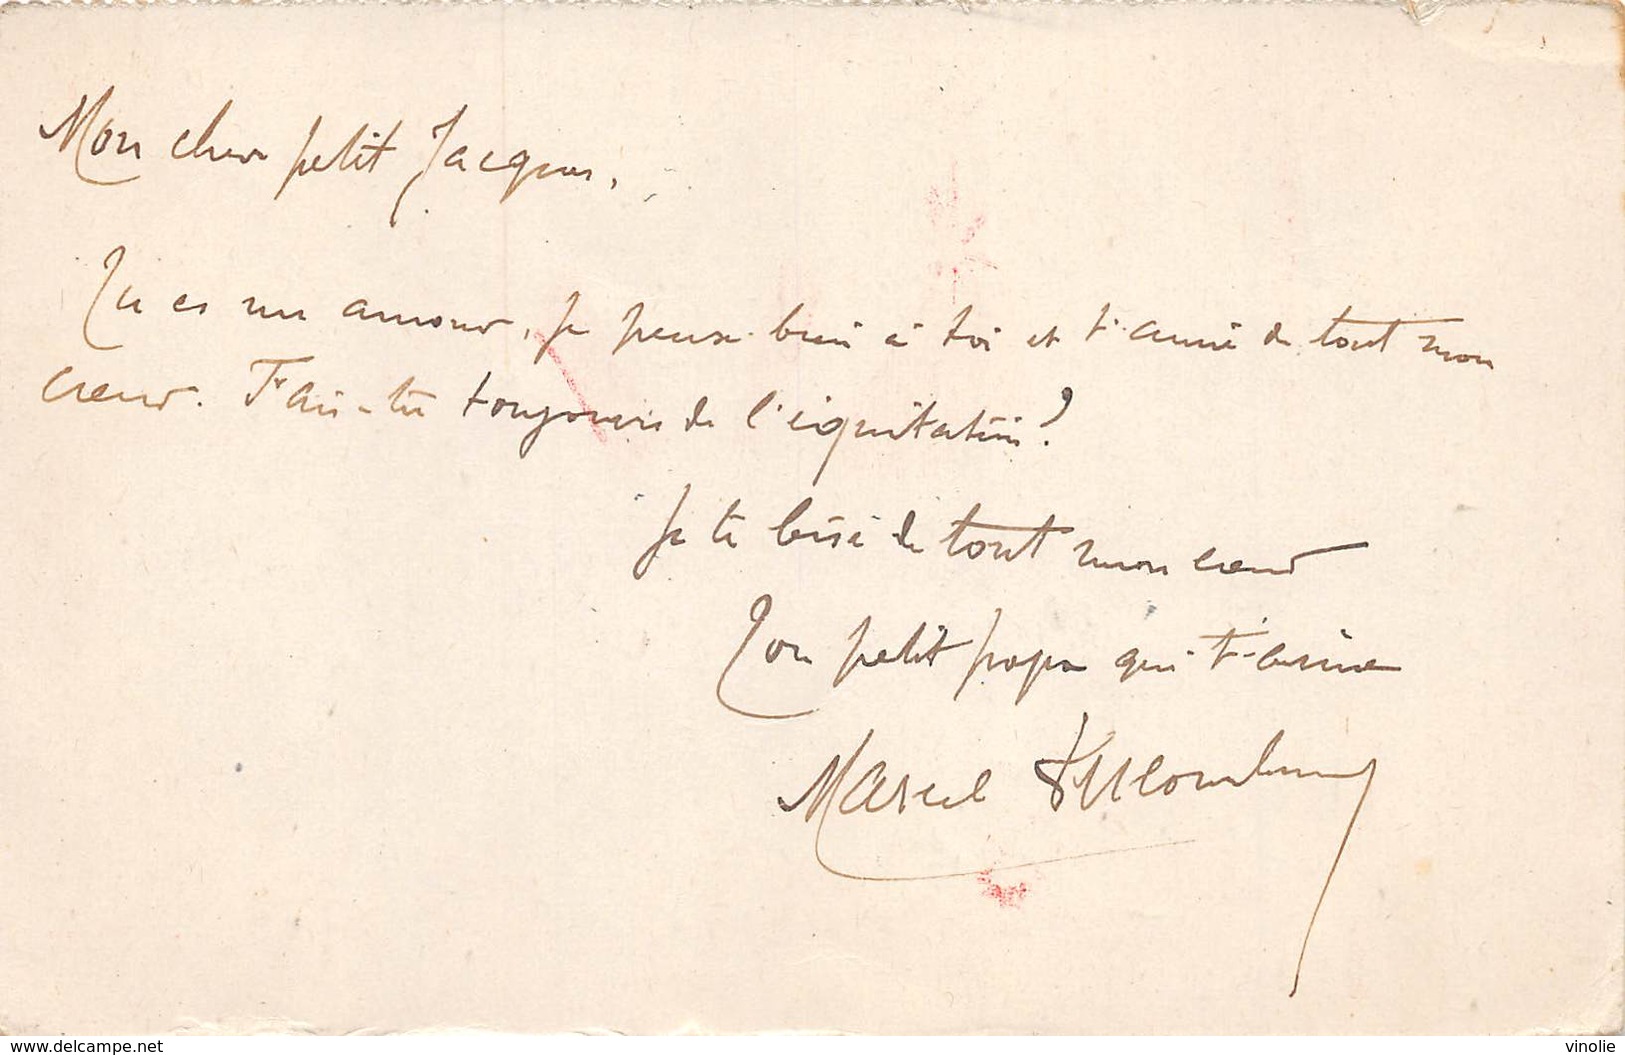 Mon cher petit Jacques,
Tu es un amour, je pense bien à toi et t'aime de tout mon
cœur. Fais-tu toujours de l'équitation?
Je te bise de tout mon cœur
Ton petit papa qui t'aime
Marcel
www.delcampe.net
vinolie